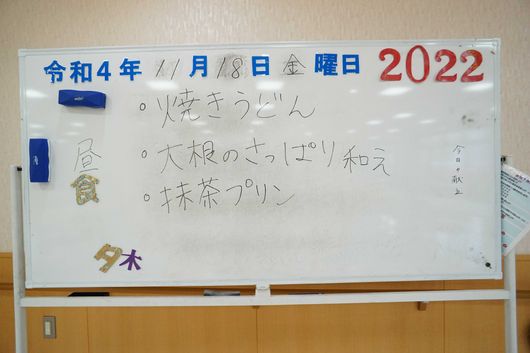 令和4年 11月 18日 金曜日 2022
昼食
・焼きうどん
・大根のさっぱり和え
・抹茶プリン
今日の献立
夕木